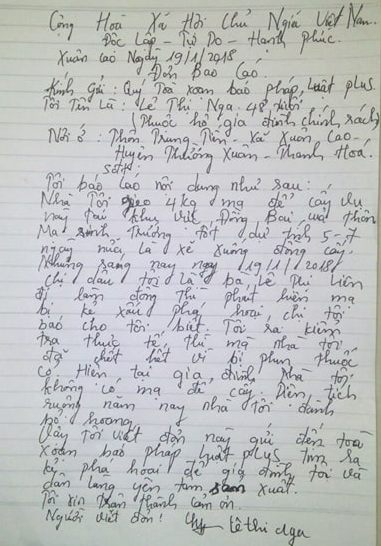 Cộng Hoà Xã Hội Chủ Ngiã Việt Nam.
Độc Lập - Tự Do - Hạnh Phúc.
Xuân Cao Ngày 19/1/2018
Đơn Báo Cáo.
Kính Gửi: Quý Toà xoan báo pháp luật plus.
Tôi Tên Là: Lê Thị Nga 48 tuổi
(Thuộc hộ gia đình chính sách)
Nơi ở: Thôn Trung Tiến - Xã Xuân Cao -
Huyện Thường Xuân - Thanh Hoá.
Tôi báo cáo nội dung như sau:
Nhà Tôi gieo 4 kg mạ để cấy vụ
này tại khu vực Đồng Bai và thôn
Mạ sinh Trưởng tốt dự tính 5-7
ngày nữa là xẽ xuống đồng cấy.
Nhưng sang nay ngày 19/1/2018
chị dâu tôi là bà Lê Thị Liên
đi làm đồng thì phát hiện mạ
bị kẻ xấu phá hoại, chị tôi
báo cho tôi biết. Tôi ra kiểm
tra thực tế, thì mạ nhà tôi
đã chết hết vì bị phun thuốc
cỏ. Hiện tại gia đình nhà tôi
không có mạ để cấy. Diện tích
ruộng năm nay nhà Tôi đành
bỏ hoang.
Vậy Tôi viết đơn này gửi đến toà
xoan báo pháp luật plus tìm ra
kẻ phá hoại để gia đình tôi và
dân làng yên tâm sản xuất.
Tôi xin trân thành cảm ơn.
Người viết đơn! Lê thị Nga